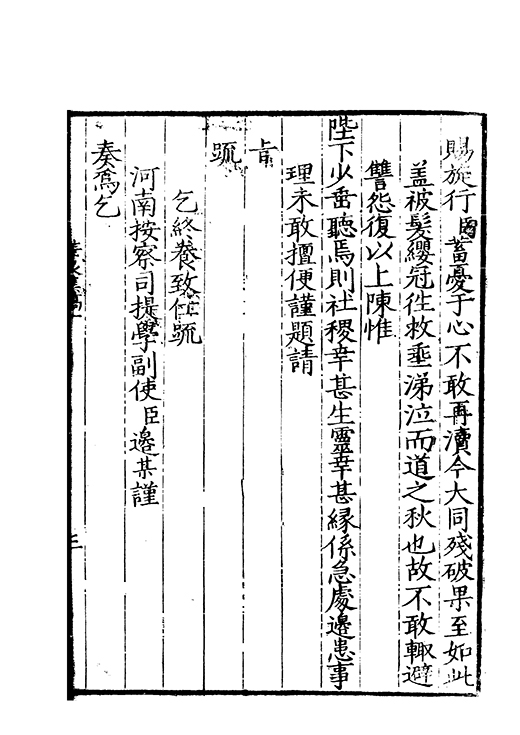 賜旋行臣蓄憂于心不敢再瀆今大同殘破果至如此
蓋被髮纓冠往救垂涕泣而道之秋也故不敢輙避
讐怨復以上陳惟
陛下少畱聽焉則社稷幸甚生靈幸甚縁係急處邊患事
理未敢擅便謹題請
旨
䟽
乞終養致仕䟽
河南按察司提學副使臣邊某謹
奏爲乞
三